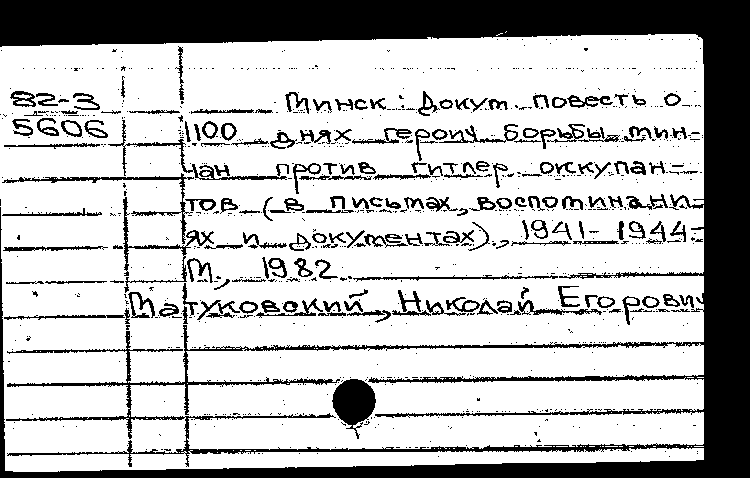 82-3 Минск: Докум. повесть о
5606 1100 днях героич. борьбы мин-
чан против гитлер. оккупан-
тов (в письмах, воспоминани-
ях и документах), 1941-1944-
М., 1982
Матуковский, Николай Егорович